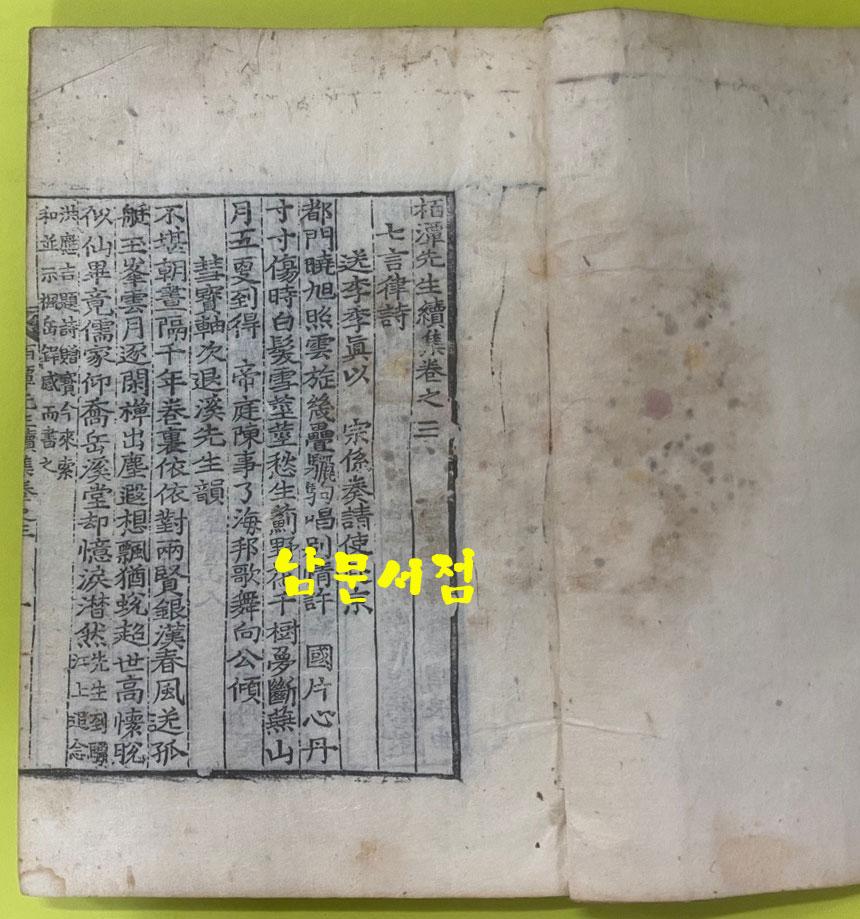 栢潭先生續集卷之三
七言律詩
送李季眞以 宗係奏請使 京
都門曉旭照雲旋幾疊驪駒唱別情許 國片心丹
寸寸傷時白髮雪莖莖愁生薊野 千樹夢斷燕山
月五更到得 帝庭陳事了海邦歌舞向公傾
彗寶軸次退溪先生韻
不堪朝晝隔千年卷裏依依對兩賢銀漢春風送孤
艇玉峯雲月逐閑禪出塵遐想飄猶蛻超世高懷脫
似仙畢竟儒家仰喬岳溪堂却憶淚潸然先生到驪
江上追念
洪應吉題詩贈寶今來索
和並示楓岳 感而書之
栢潭先生續集卷之三 一
남문서점